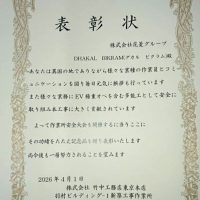 表彰状
株式会社花菱グループ
DHAKAL BIKRAM(ダカル ビクラム)殿
あなたは異国の地でありながら様々な業種の作業員とコミ
ュニケーションを図り毎日元気に挨拶も行っています
また様々な業務にEV積載オペを含む多能工として安全に
取り組み本工事に大きく貢献されています
よって作業所安全大会を開催するに当りここに
その功績をたたえ記念品を贈り表彰いたします
尚今後も一層努力されることを望みます
2026年4月1日
株式会社 竹中工務店東京本店
羽村ビルディング-1新築工事作業所